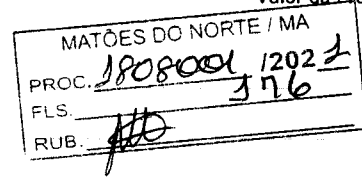 MATÕES DO NORTE / MA
PROC. 1808001 /2021
FLS. 176
RUB.